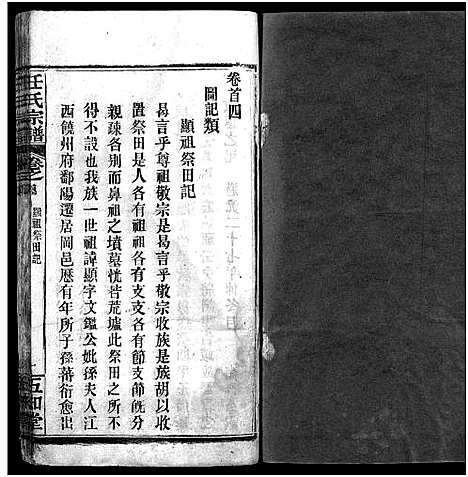 卷首四
圖記類
顯祖祭田記
曷言乎尊祖敬宗是曷言乎敬宗收族是族胡以收
置祭田是人各有祖祖各有支支各有節節既分
親疎各別而鼻祖之墳墓恍皆荒墟此祭田之所不
得不設也我族一世祖諱顯字文鑑公妣孫夫人江
西饒州府鄱陽遷居岡邑歷有年所子孫蕃衍愈出
氏宗譜
卷之
顯祖祭田記
五和堂
道光二十七年